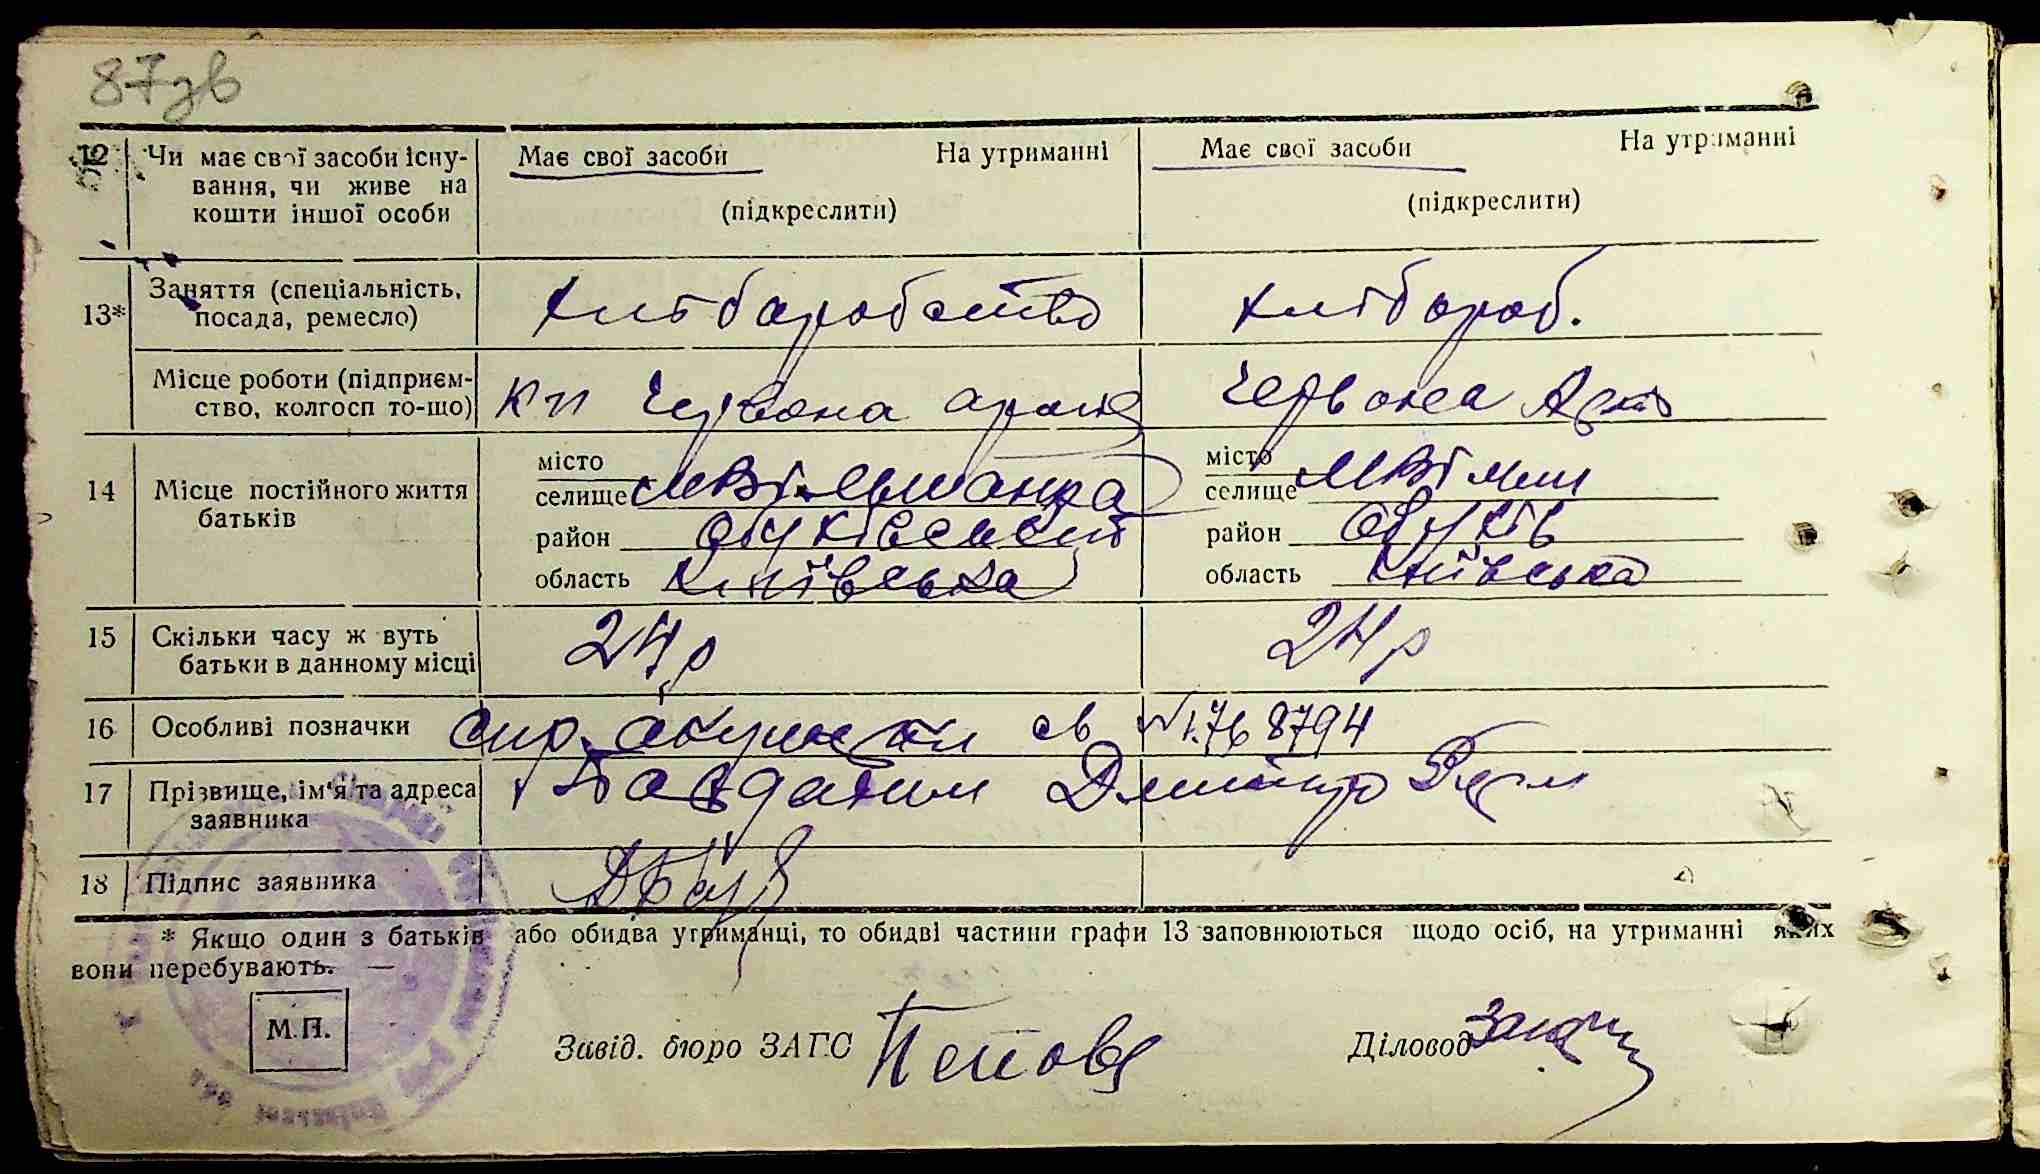 87зв
12 Чи має свої засоби існу- Має свої засоби На утриманні Має свої засоби На утриманні
вання, чи живе на
кошти іншої особи (підкреслити) (підкреслити)
13* Заняття (спеціальність, хлібаробство хлібороб.
посада, ремесло)
Місце роботи (підприєм-
ство, колгосп то-що) Червона Червона
місто місто
14 Місце постійного життя селище селище
батьків район район Обухів
область Київська область Київська
15 Скільки часу ж вуть 24 р 24 р
батьки в данному місці
16 Особливі позначки св № 1768794
17 Прізвище, ім'я та адреса Дмитро
заявника
18 Підпис заявника
* Якщо один з батьків або обидва утриманці, то обидві частини графи 13 заповнюються щодо осіб, на утриманні яких
вони перебувають. —
М.П.
Завід. бюро ЗАГС Діловод